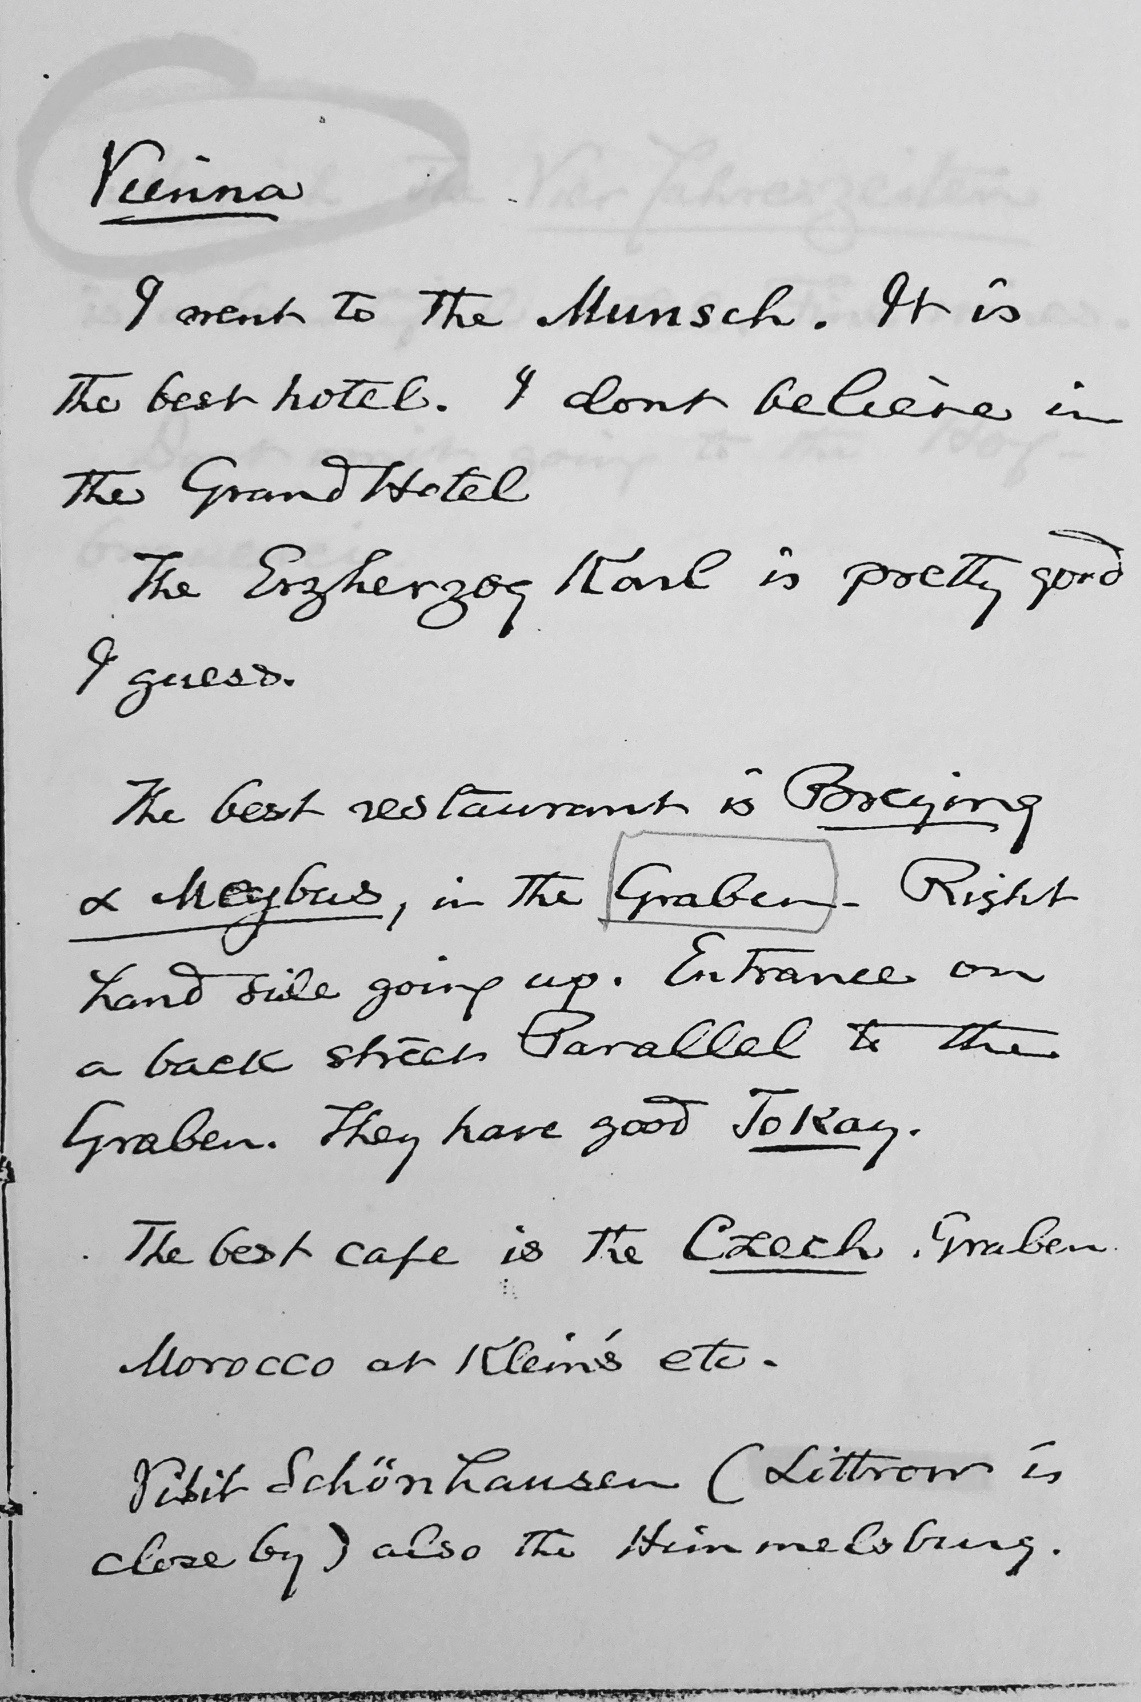 Vienna
I went to the Munsch. It is
the best hotel. I dont believe in
the Grand Hotel
The Erzherzog Karl is pretty good
I guess.
The best restaurant is Breying
& Meybus, in the Graben. Right
hand side going up. Entrance on
a back street Parallel to the
Graben. They have good Tokay.
The best cafe is the Czech. Graben
Morocco at Klein's etc.
Visit Schönhausen (Littrow is
close by) also the Himmelsburg.